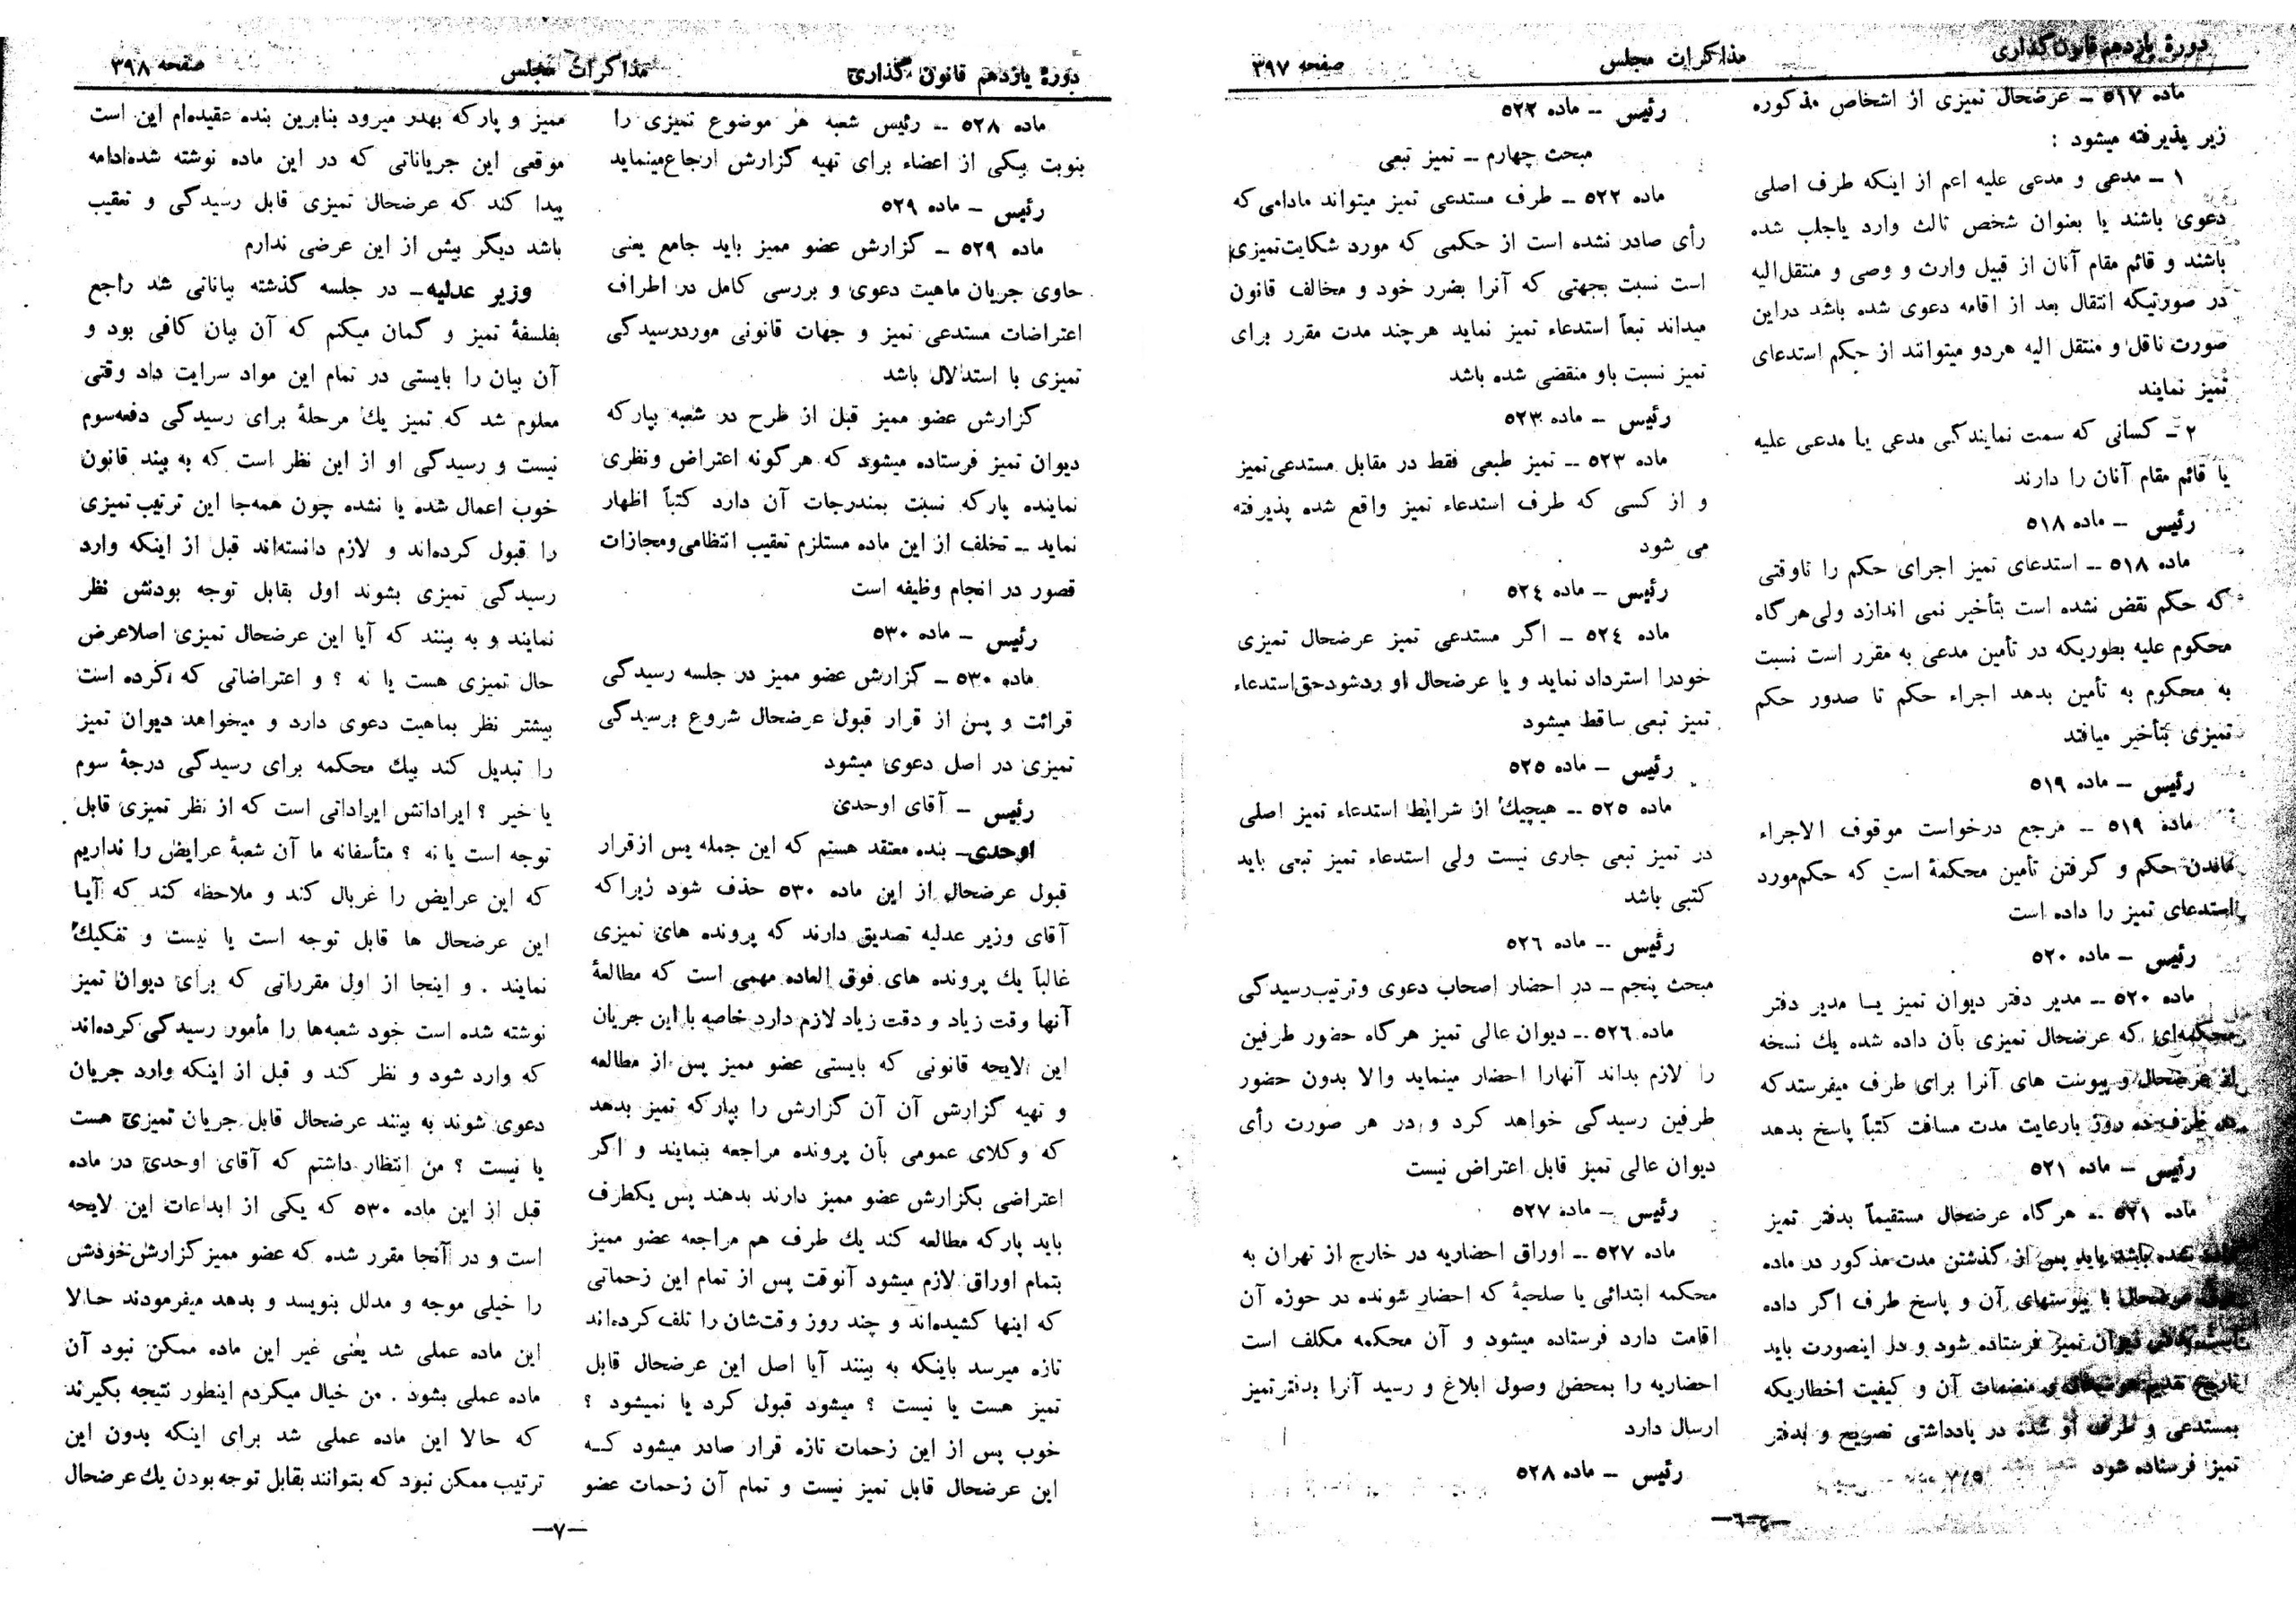 دورهٔ یازدهم قانون گذاری
مذاکرات مجلس
صفحه ۳۹۷
ماده ۵۱۷ ــ عرضحال تمیزی از اشخاص مذکوره
زیر پذیرفته میشود :
۱ ــ مدعی و مدعی علیه اعم از اینکه طرف اصلی
دعوی باشند یا بعنوان شخص ثالث وارد یاجلب شده
باشند و قائم مقام آنان از قبیل وارث و وصی و منتقل‌الیه
در صورتیکه انتقال بعد از اقامه دعوی شده باشد دراین
صورت ناقل و منتقل الیه هردو میتوانند از حکم استدعای
تمیز نمایند
۲ ــ کسانی که سمت نمایندگی مدعی یا مدعی علیه
یا قائم مقام آنان را دارند
رئیس ــ ماده ۵۱۸
ماده ۵۱۸ ــ استدعای تمیز اجرای حکم را تاوقتی
که حکم نقض نشده است بتأخیر نمی اندازد ولی هرگاه
محکوم علیه بطوریکه در تأمین مدعی به مقرر است نسبت
به محکوم به تأمین بدهد اجراء حکم تا صدور حکم
تمیزی بتأخیر میافتد
رئیس ــ ماده ۵۱۹
ماده ۵۱۹ ــ مرجع درخواست موقوف الاجراء
ماندن حکم و گرفتن تأمین محکمهٔ است که حکم‌مورد
استدعای تمیز را داده است
رئیس ــ ماده ۵۲۰
ماده ۵۲۰ ــ مدیر دفتر دیوان تمیز یا مدیر دفتر
محکمه‌ای که عرضحال تمیزی بآن داده شده یك نسخه
از عرضحال و پیوست های آنرا برای طرف میفرستد که
طرف ده روز بارعایت مدت مسافت کتباً پاسخ بدهد
رئیس ــ ماده ۵۲۱
ماده ۵۲۱ ــ هرگاه عرضحال مستقیماً بدفتر تمیز
نشده باشد باید پس از گذشتن مدت مذکور در ماده
عرضحال با پیوستهای آن و پاسخ طرف اگر داده
دیوان تمیز فرستاده شود و در اینصورت باید
تاریخ تقدیم و منضمات آن و کیفیت اخطاریکه
بمستدعی و طرف او شده در یادداشتی تصریح و بدفتر
تمیز فرستاده شود
رئیس ــ ماده ۵۲۲
مبحث چهارم ــ تمیز تبعی
ماده ۵۲۲ ــ طرف مستدعی تمیز میتواند مادامی که
رأی صادر نشده است از حکمی که مورد شکایت‌تمیزی
است نسبت بجهتی که آنرا بضرر خود و مخالف قانون
میداند تبعاً استدعاء تمیز نماید هرچند مدت مقرر برای
تمیز نسبت باو منقضی شده باشد
رئیس ــ ماده ۵۲۳
ماده ۵۲۳ ــ تمیز طبعی فقط در مقابل مستدعی‌تمیز
و از کسی که طرف استدعاء تمیز واقع شده پذیرفته
می شود
رئیس ــ ماده ۵۲٤
ماده ۵۲٤ ــ اگر مستدعی تمیز عرضحال تمیزی
خودرا استرداد نماید و یا عرضحال او ردشودحق‌استدعاء
تمیز تبعی ساقط میشود
رئیس ــ ماده ۵۲۵
ماده ۵۲۵ ــ هیچیك از شرایط استدعاء تمیز اصلی
در تمیز تبعی جاری نیست ولی استدعاء تمیز تبعی باید
کتبی باشد
رئیس ــ ماده ۵۲٦
مبحث پنجم ــ در احضار اصحاب دعوی وترتیب‌رسیدگی
ماده ۵۲٦ ــ دیوان عالی تمیز هرگاه حضور طرفین
را لازم بداند آنهارا احضار مینماید والا بدون حضور
طرفین رسیدگی خواهد کرد و در هر صورت رأی
دیوان عالی تمیز قابل اعتراض نیست
رئیس ــ ماده ۵۲۷
ماده ۵۲۷ ــ اوراق احضاریه در خارج از تهران به
محکمه ابتدائی یا صلحیهٔ که احضار شونده در حوزه آن
اقامت دارد فرستاده میشود و آن محکمه مکلف است
احضاریه را بمحض وصول ابلاغ و رسید آنرا بدفترتمیز
ارسال دارد
رئیس ــ ماده ۵۲۸
دورهٔ یازدهم قانون گذاری
مذاکرات مجلس
صفحه ۳۹۸
ماده ۵۲۸ ــ رئیس شعبه هر موضوع تمیزی را
بنوبت بیکی از اعضاء برای تهیه گزارش ارجاع‌مینماید
رئیس ــ ماده ۵۲۹
ماده ۵۲۹ ــ گزارش عضو ممیز باید جامع یعنی
حاوی جریان ماهیت دعوی و بررسی کامل در اطراف
اعتراضات مستدعی تمیز و جهات قانونی موردرسیدگی
تمیزی با استدلال باشد
گزارش عضو ممیز قبل از طرح در شعبه بپارکه
دیوان تمیز فرستاده میشود که هرگونه اعتراض ونظری
نماینده پارکه نسبت بمندرجات آن دارد کتباً اظهار
نماید ــ تخلف از این ماده مستلزم تعقیب انتظامی‌ومجازات
قصور در انجام وظیفه است
رئیس ــ ماده ۵۳۰
ماده ۵۳۰ ــ گزارش عضو ممیز در جلسه رسیدگی
قرائت و پس از قرار قبول عرضحال شروع برسیدگی
تمیزی در اصل دعوی میشود
رئیس ــ آقای اوحدی
اوحدی ــ بنده معتقد هستم که این جمله پس ازقرار
قبول عرضحال از این ماده ۵۳۰ حذف شود زیراکه
آقای وزیر عدلیه تصدیق دارند که پرونده های تمیزی
غالباً یك پرونده های فوق العاده مهمی است که مطالعهٔ
آنها وقت زیاد و دقت زیاد لازم دارد خاصه با این جریان
این لایحه قانونی که بایستی عضو ممیز پس از مطالعه
و تهیه گزارش آن آن گزارش را بپارکه تمیز بدهد
که وکلای عمومی بآن پرونده مراجعه بنمایند و اگر
اعتراضی بگزارش عضو ممیز دارند بدهند پس یکطرف
باید پارکه مطالعه کند یك طرف هم مراجعه عضو ممیز
بتمام اوراق لازم میشود آنوقت پس از تمام این زحماتی
که اینها کشیده‌اند و چند روز وقت‌شان را تلف کرده‌اند
تازه میرسد باینکه به بینند آیا اصل این عرضحال قابل
تمیز هست یا نیست ؟ میشود قبول کرد یا نمیشود ؟
خوب پس از این زحمات تازه قرار صادر میشود که
این عرضحال قابل تمیز نیست و تمام آن زحمات عضو
ممیز و پارکه بهدر میرود بنابرین بنده عقیده‌ام این است
موقعی این جریاناتی که در این ماده نوشته شده‌ادامه
پیدا کند که عرضحال تمیزی قابل رسیدگی و تعقیب
باشد دیگر بیش از این عرضی ندارم
وزیر عدلیه ــ در جلسه گذشته بیاناتی شد راجع
بفلسفهٔ تمیز و گمان میکنم که آن بیان کافی بود و
آن بیان را بایستی در تمام این مواد سرایت داد وقتی
معلوم شد که تمیز یك مرحلهٔ برای رسیدگی دفعه‌سوم
نیست و رسیدگی او از این نظر است که به بیند قانون
خوب اعمال شده یا نشده چون همه‌جا این ترتیب تمیزی
را قبول کرده‌اند و لازم دانسته‌اند قبل از اینکه وارد
رسیدگی تمیزی بشوند اول بقابل توجه بودنش نظر
نمایند و به بینند که آیا این عرضحال تمیزی اصلاعرض
حال تمیزی هست یا نه ؟ و اعتراضاتی که کرده است
بیشتر نظر بماهیت دعوی دارد و میخواهد دیوان تمیز
را تبدیل کند بیك محکمه برای رسیدگی درجهٔ سوم
یا خیر ؟ ایراداتش ایراداتی است که از نظر تمیزی قابل
توجه است یا نه ؟ متأسفانه ما آن شعبهٔ عرایض را نداریم
که این عرایض را غربال کند و ملاحظه کند که آیا
این عرضحال ها قابل توجه است یا نیست و تفکیك
نمایند . و اینجا از اول مقرراتی که برای دیوان تمیز
نوشته شده است خود شعبه‌ها را مأمور رسیدگی کرده‌اند
که وارد شود و نظر کند و قبل از اینکه وارد جریان
دعوی شوند به بینند عرضحال قابل جریان تمیزی هست
یا نیست ؟ من انتظار داشتم که آقای اوحدی در ماده
قبل از این ماده ۵۳۰ که یکی از ابداعات این لایحه
است و در آنجا مقرر شده که عضو ممیز گزارش خودش
را خیلی موجه و مدلل بنویسد و بدهد میفرمودند حالا
این ماده عملی شد یعنی غیر این ماده ممکن نبود آن
ماده عملی بشود . من خیال میکردم اینطور نتیجه بگیرند
که حالا این ماده عملی شد برای اینکه بدون این
ترتیب ممکن نبود که بتوانند بقابل توجه بودن یك عرضحال
ــ۷ــ